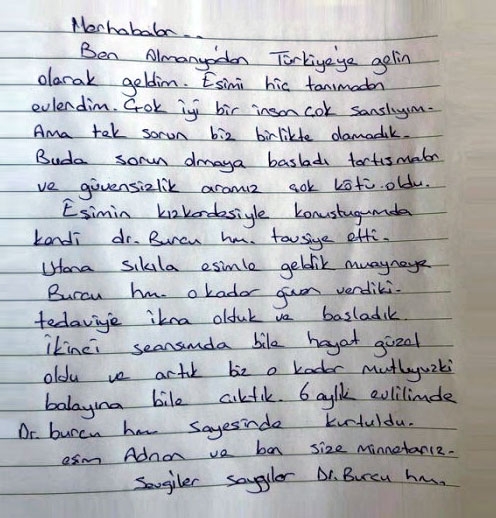 Merhabalar...
Ben Almanya'dan Türkiye'ye gelin
olarak geldim. Eşimi hiç tanımadan
evlendim. Çok iyi bir insan çok şanslıyım.
Ama tek sorun biz birlikte olamadık.
Buda sorun olmaya başladı tartışmalar
ve güvensizlik aramız çok kötü oldu.
Eşimin kızkardeşiyle konuştuğumda
kendi dr. Burcu hm. tavsiye etti.
Utana sıkıla eşimle geldik muayneye
Burcu hm. o kadar güven verdiki.
tedaviye ikna olduk ve başladık.
İkinci seansımda bile hayat güzel
oldu ve artık biz o kadar mutluyuzki
balayına bile çıktık. 6 aylık evliliğimde
Dr. burcu hm sayesinde kurtuldu.
eşim Adnan ve ben size minnetarız.
Sevgiler saygılar Dr. Burcu hm.